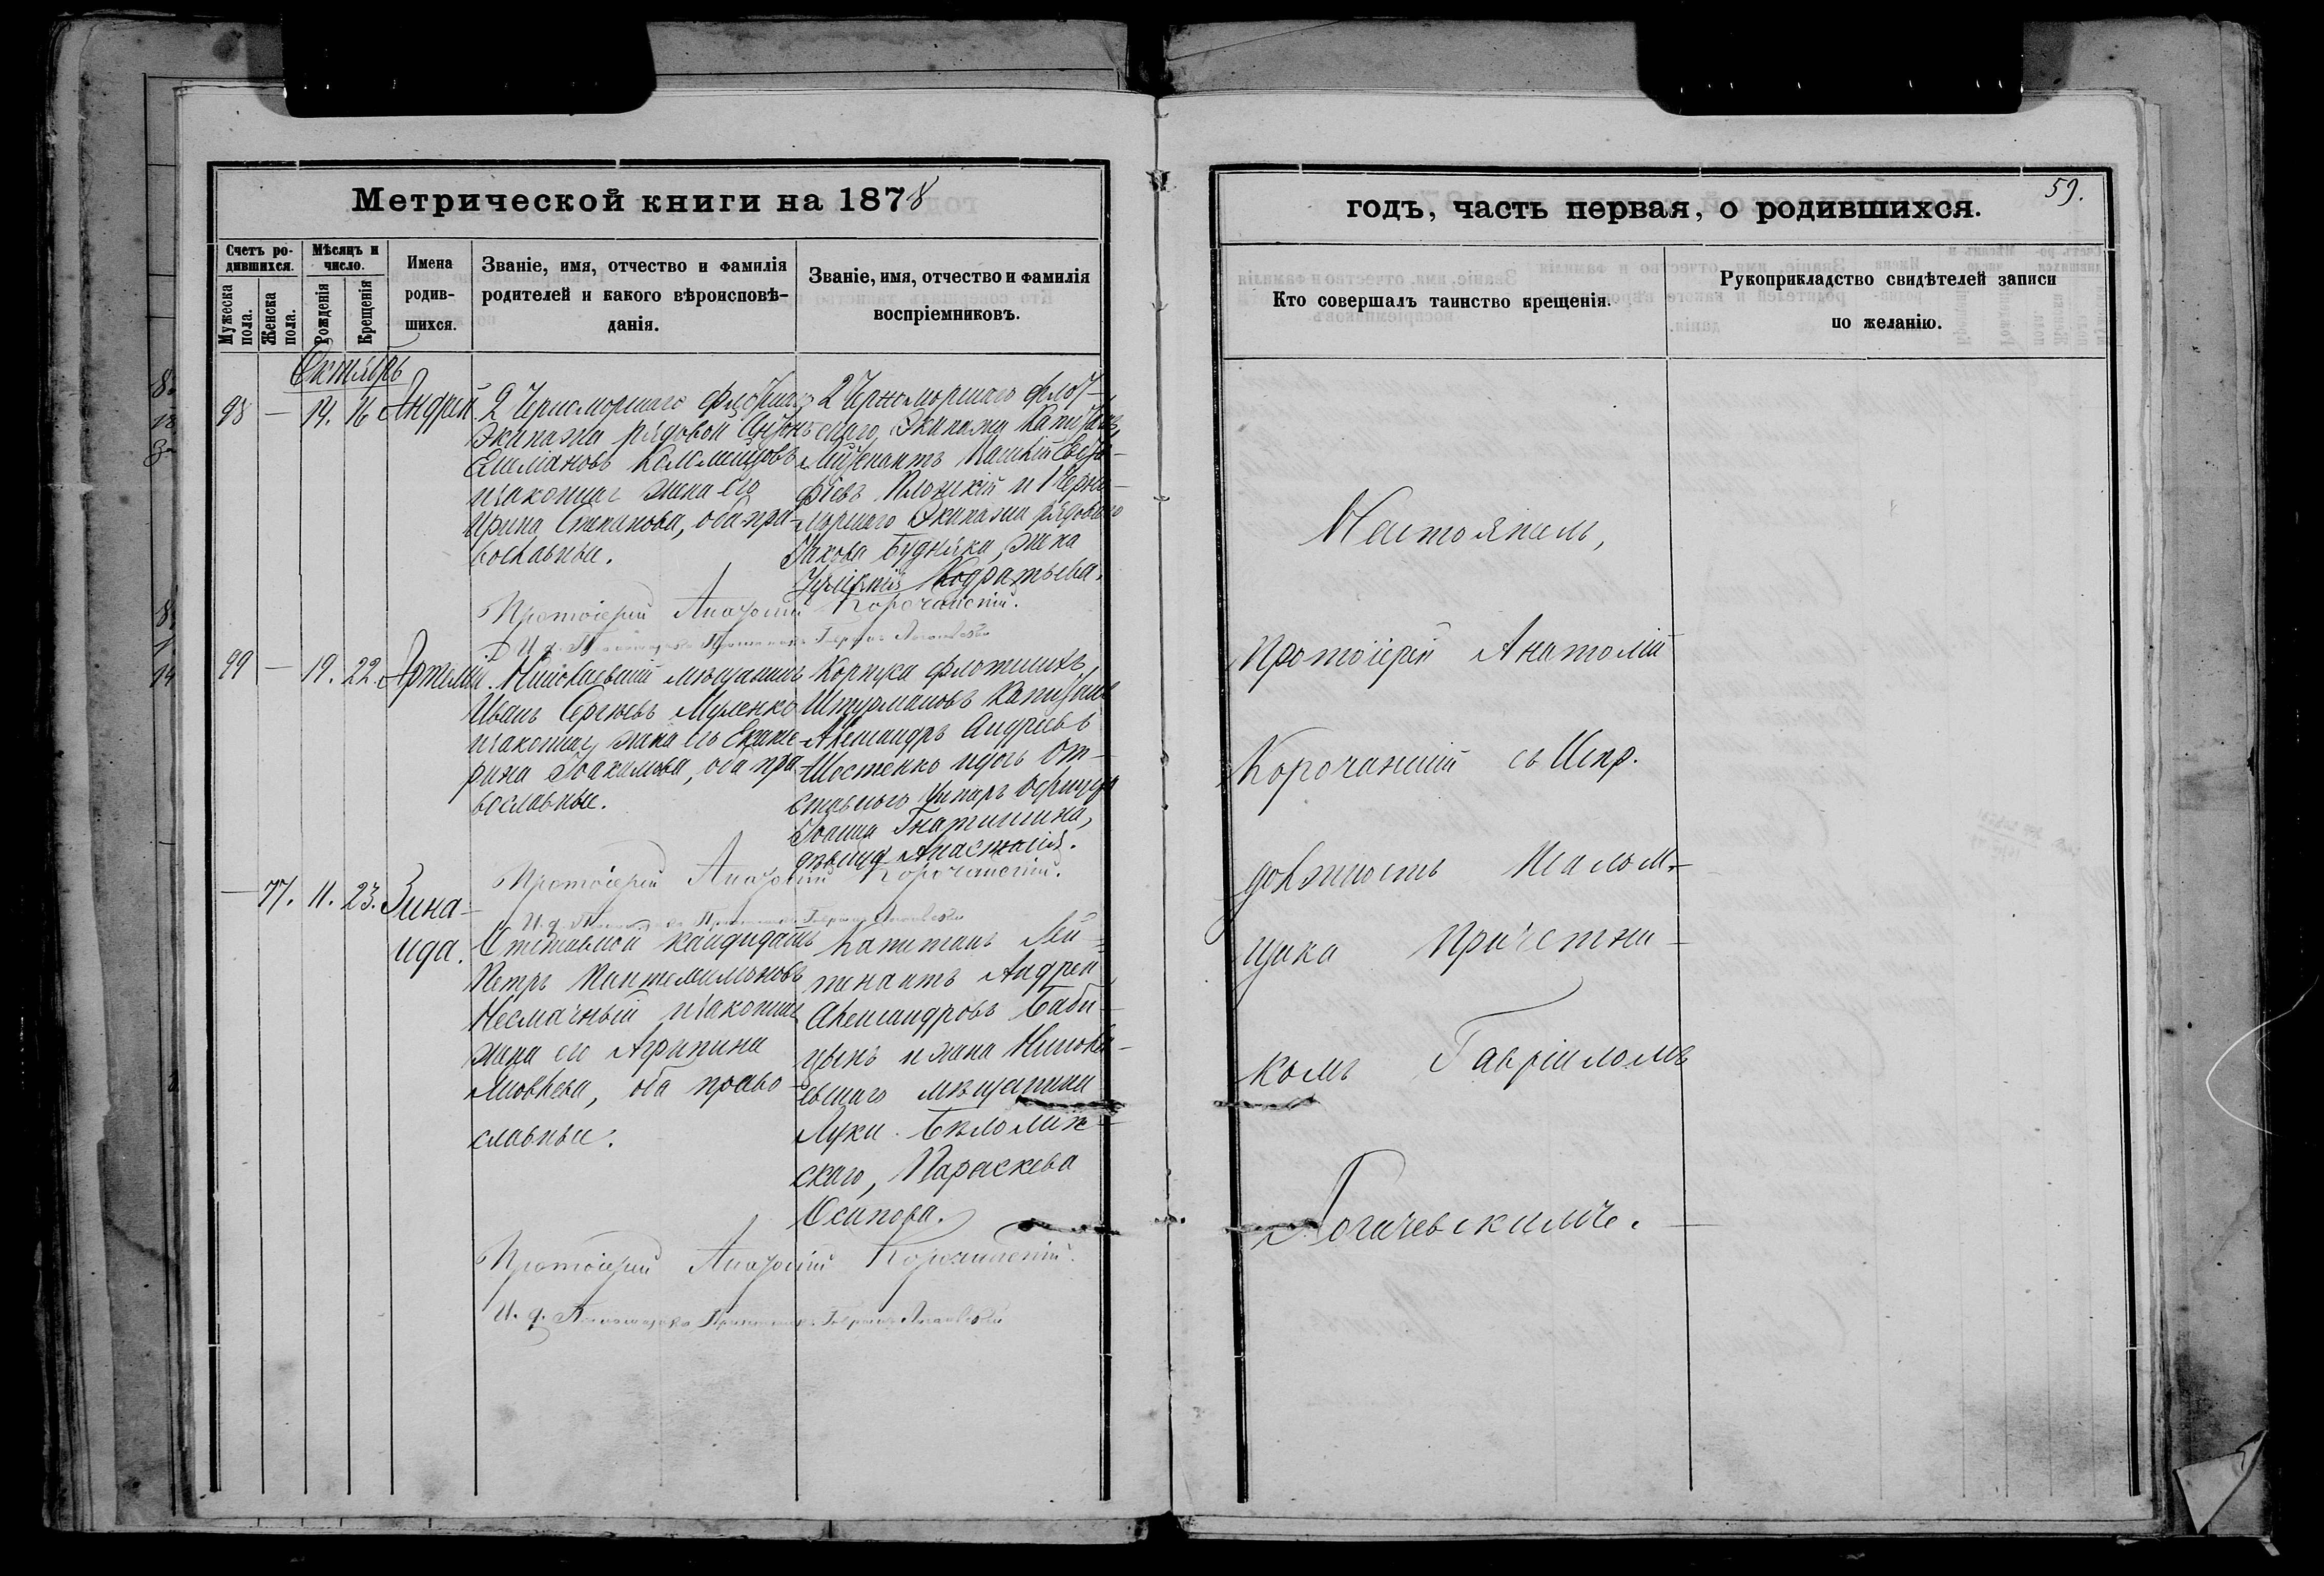 Метрической книги на 1878
Счетъ родившихся.
Мужеска пола.
Женска пола.
Мѣсяцъ и число.
Рожденія
Крещенія
Имена родившихся.
Званіе, имя, отчество и фамилія
родителей и какого вѣроисповѣ-
данія.
Званіе, имя, отчество и фамилія
воспріемниковъ.
Октябрь
98 — 14. 16 Андрей.
2 Черноморскаго флотскаго
экипажа рядовой Антонъ
Емиліановъ Коломийцовъ
и законная жена его
Ирина Степанова, оба пра-
вославные.
2 Черноморскаго флот-
скаго Экипажа Капитанъ
Лейтенантъ
и 1 Черно-
морскаго Экипажа рядоваго
Якова Будняка, жена
Кодратьева.
Протоіерей Анатолій Корочанскій.
И. д. Псаломщика Причетникъ Гавріилъ Логачевскій
99 — 19. 22. Артемій.
Николаевскій мѣщанинъ
Иванъ Сергѣевъ Муленко
и законная жена его Екате-
рина Іоакимова, оба пра-
вославные.
Корпуса флотскихъ
Штурмановъ Капитанъ
Александръ Андреевъ
Шостенко и дочь От-
ставнаго Унтеръ Офицера
Іоанна Гнатишина,
дѣвица Анастасія.
Протоіерей Анатолій Корочанскій.
И. д. Псаломщика Причетникъ Гавріилъ Логачевскій
— 77. 11. 23. Зина-
ида.
Отставной кандидатъ
Петръ Пантелеимоновъ
Несмачный и законная
жена его Агрипина
Іовлева, оба право-
славные.
Капитанъ Лей-
тенантъ Андрей
Александровъ Баби-
цынъ и жена Николаев-
евскаго мѣщанина
Луки Бѣломин-
скаго, Параскева
Осипова.
Протоіерей Анатолій Корочанскій.
И. д. Псаломщика Причетникъ Гавріилъ Логачевскій
59.
годъ, часть первая, о родившихся.
Кто совершалъ таинство крещенія.
Рукоприкладство свидѣтелей записи
по желанію.
Настоятель,
Протоіерей Анатолій
Корочанскій съ Испр.
должность Псалом-
щика Причетни-
комъ Гавріиломъ
Логачевскимъ.